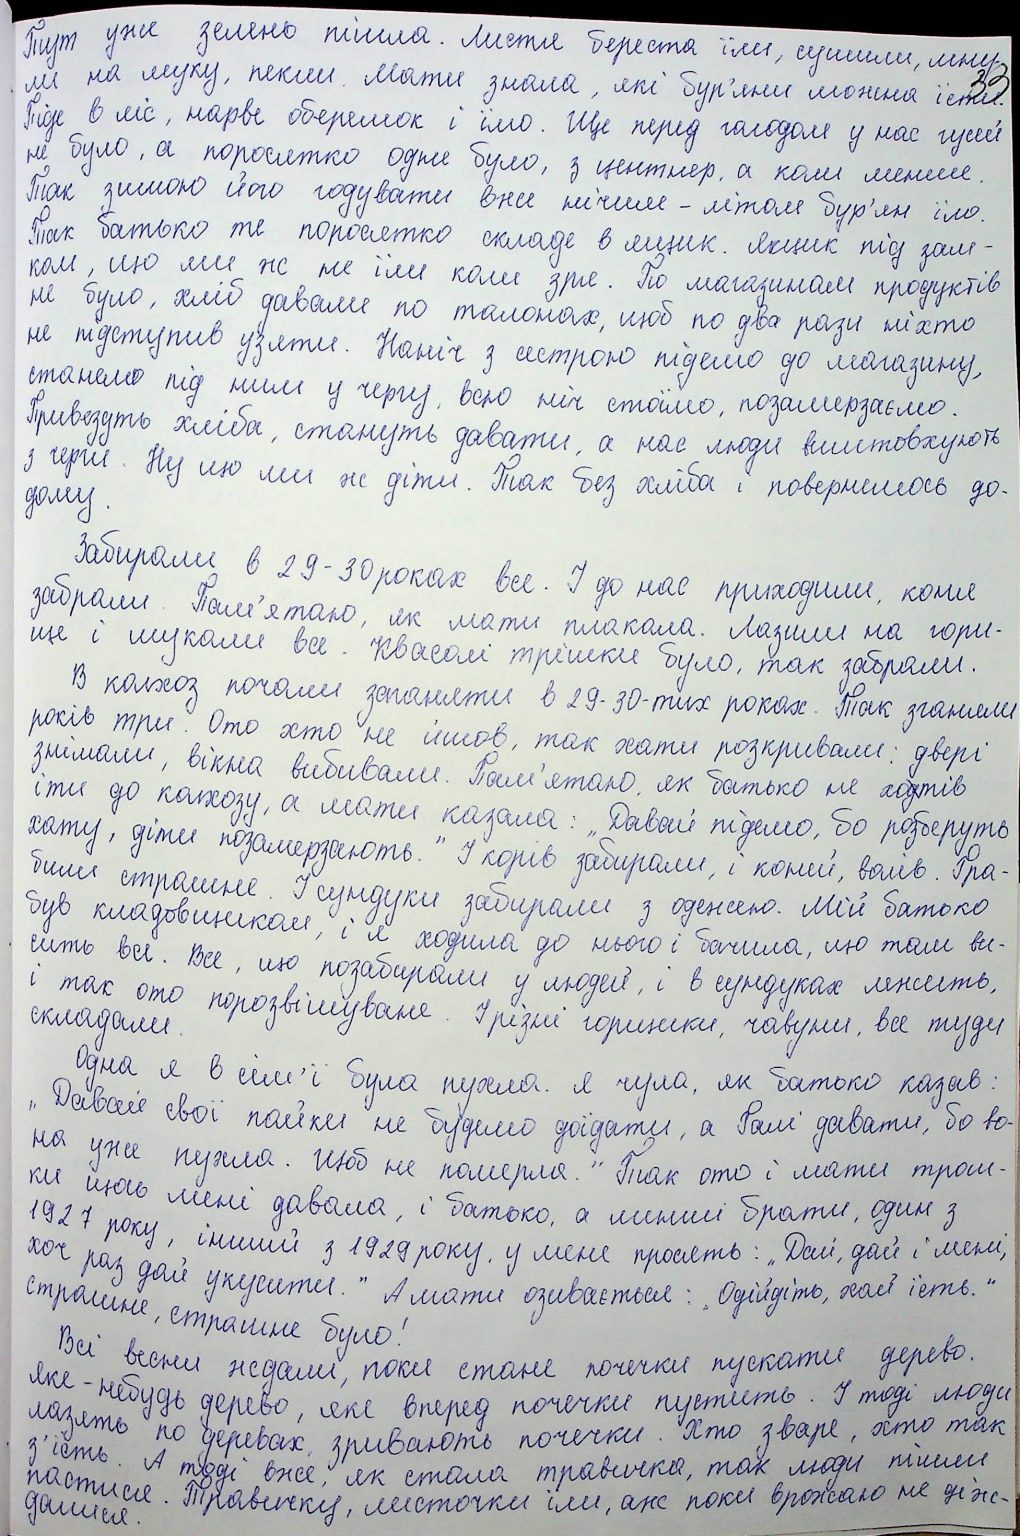 Тут уже зелено пішла. Листя береста їли, сушили, мну-
ли на муку, пекли. Мати знала, які бур'яни можна їсти.
33
Піде в ліс, нарве оберемок і їмо. Ще перед голодом у нас гусей
не було, а поросятко одне було, з центнер, а коли менше.
Так зимою його годувати вже нічим - літом бур'ян їло.
Так батько те поросятко складе в ящик. Ящик під зам-
ком, що ми ж не їли коли зря. По магазинам продуктів
не було, хліб давали по талонах, щоб по два рази ніхто
не підступив узяти. Наніч з сестрою підемо до магазину,
станемо під ним у чергу, всю ніч стоїмо, позамерзаємо.
Привезуть хліба, стануть давати, а нас люди виштовхують
з черги. Ну що ми ж діти. Так без хліба і повернемось до-
дому.
Забирали в 29-30 роках все. І до нас приходили, коня
забрали. Пам'ятаю, як мати плакала. Лазили на гори-
ще і шукали все. Квасолі трішки було, так забрали.
В колхоз почали заганяти в 29-30-тих роках. Так зганяли
років три. Ото хто не йшов, так хати розкривали: двері
знімали, вікна вибивали. Пам'ятаю, як батько не хотів
іти до колхозу, а мати казала: „Давай підемо, бо розберуть
хату, діти позамерзають." І корів забирали, і коней, волів. Гра-
били страшне. І сундуки забирали з одежею. Мій батько
був кладовщиком, і я ходила до нього і бачила, що там ви-
сить все. Все, що позабирали у людей, і в сундуках лежить,
і так ото порозвішуване. І різні горшки, чавуни, все туди
складали.
Одна я в сім'ї була пухла. Я чула, як батько казав:
„Давай свої пайки не будемо доїдати, а Галі давати, бо во-
на уже пухла. Щоб не померла." Так ото і мати трош-
ки щось мені давала, і батько, а менші брати, один з
1927 року, інший з 1929 року, у мене просять: „Дай, дай і мені,
хоч раз дай укусити." А мати озивається: „Одійдіть, хай їсть."
Страшне, страшне було!
Всі весни ждали, поки стане почечки пускати дерево.
Яке-небудь дерево, яке вперед почечки пустить. І тоді люди
лазять по деревах, зривають почечки. Хто зваре, хто так
з'їсть. А тоді вже, як стала травичка, так люди пішли
пастися. Травичку, листочки їли, аж поки врожаю не діж-
далися.